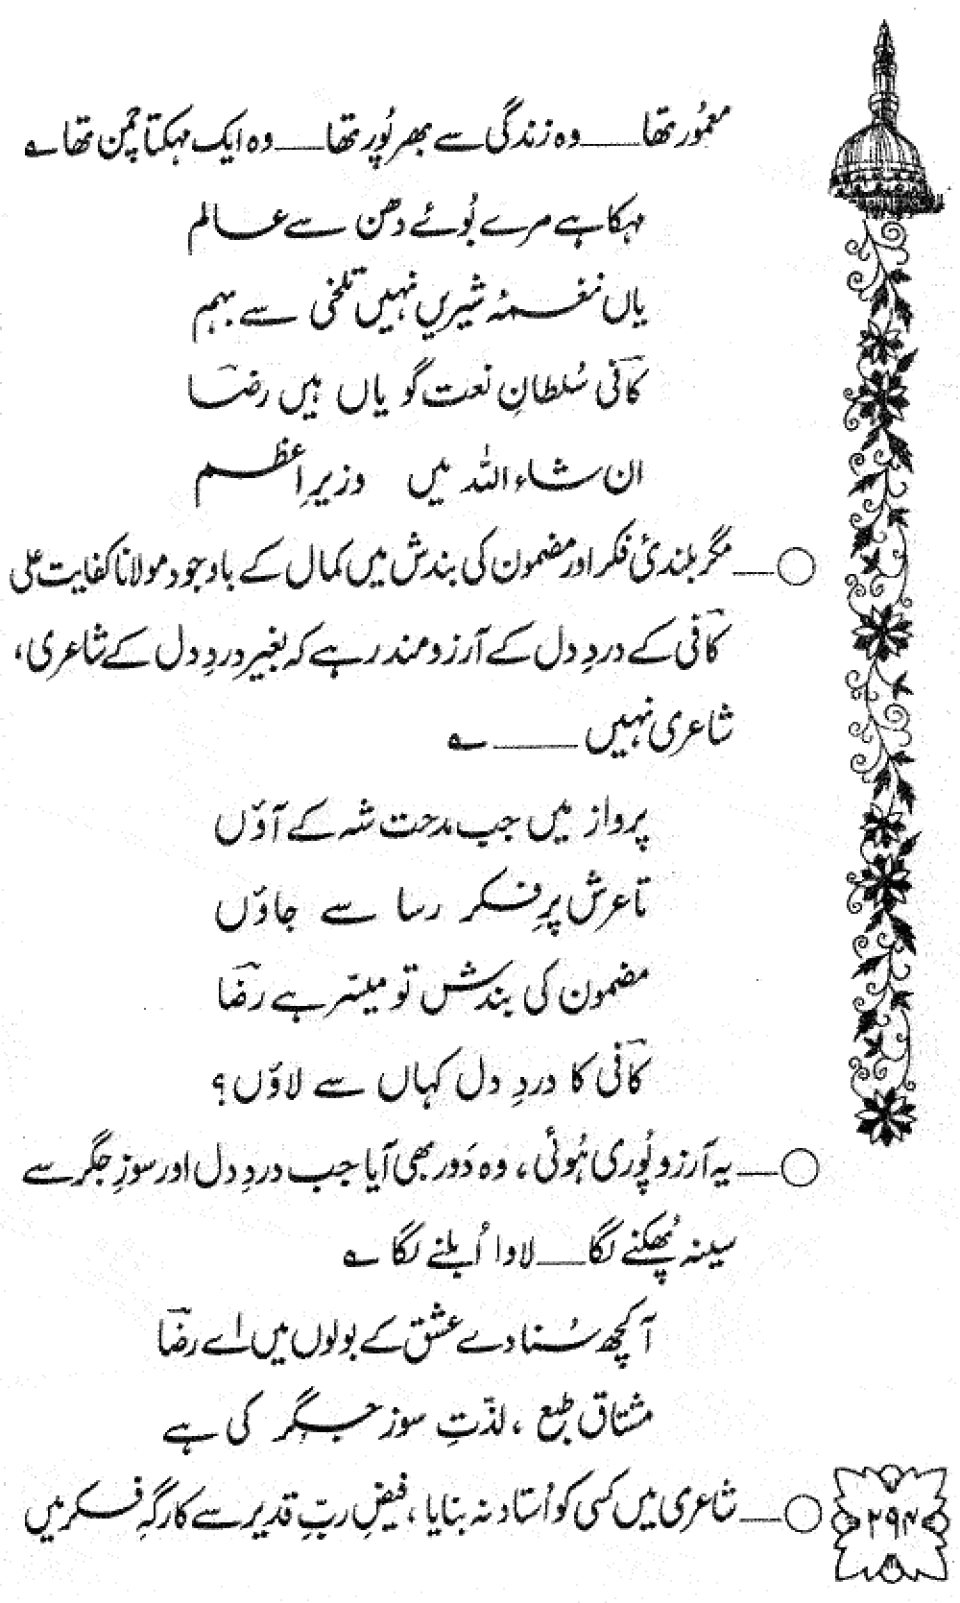 معمُور تھا ــــ وہ زندگی سے بھرپُور تھا ــــ وہ ایک مہکتا چمن تھا ؎
مہکا ہے مرے بُوئے دھن سے عالم
یاں نغمۂ شیریں نہیں تلخی سے بہم
کافؔی سُلطانِ نعت گویاں ہیں رضاؔ
ان شاء اللہ میں وزیرِ اعظم
○ ــ مگر بلندیٔ فکر اور مضمون کی بندش میں کمال کے باوجود مولانا کفایت علی
کافؔی کے دردِ دل کے آرزومند رہے کہ بغیر دردِ دل کے شاعری،
شاعری نہیں ــــ ؎
پرواز میں جب مدحت شہ کے آؤں
تا عرش پرِ فکر رسا سے جاؤں
مضمون کی بندش تو میسّر ہے رضاؔ
کافؔی کا دردِ دل کہاں سے لاؤں؟
○ ــ یہ آرزو پُوری ہُوئی، وہ دَور بھی آیا جب دردِ دل اور سوزِ جگر سے
سینہ پُھکنے لگا ــــ لاوا اُبلنے لگا ؎
آ کچھ سُنا دے عشق کے بولوں میں اے رضاؔ
مشتاق طبع، لذّتِ سوزِ جگر کی ہے
○ ــ شاعری میں کسی کو اُستاد نہ بنایا، فیضِ ربِّ قدیر سے کارگہِ فکر میں
۲۹۴